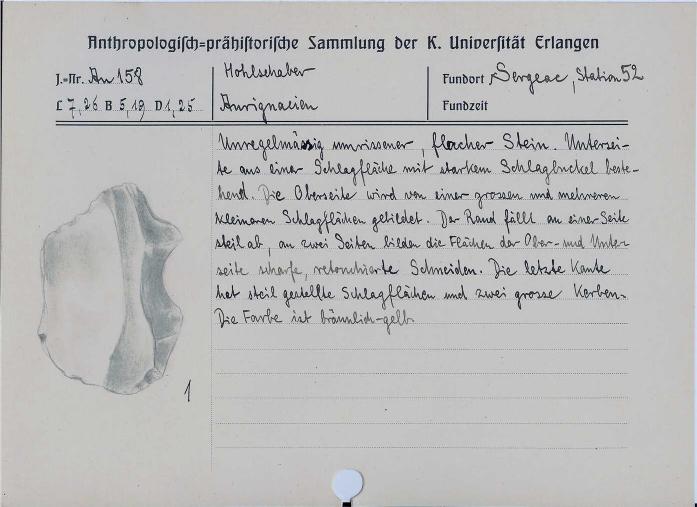 Anthropologisch=prähistorische Sammlung der K. Universität Erlangen
J.=Nr. An 158
L 7,26 B 5,19 D 1,25
Hohlschaber
Aurignacien
Fundort Sergeac, Station 52
Fundzeit
Unregelmässig umrissener, flacher Stein. Untersei-
te aus einer Schlagfläche mit starkem Schlagbuckel beste-
hend. Die Oberseite wird von einer grossen und mehreren
kleineren Schlagflächen gebildet. Der Rand fällt an einer Seite
steil ab, an zwei Seiten bilden die Flächen der Ober- und Unter-
seite scharfe, retouchierte Schneiden. Die letzte Kante
hat steil gestellte Schlagflächen und zwei grosse Kerben.
Die Farbe ist bräunlich-gelb.
1